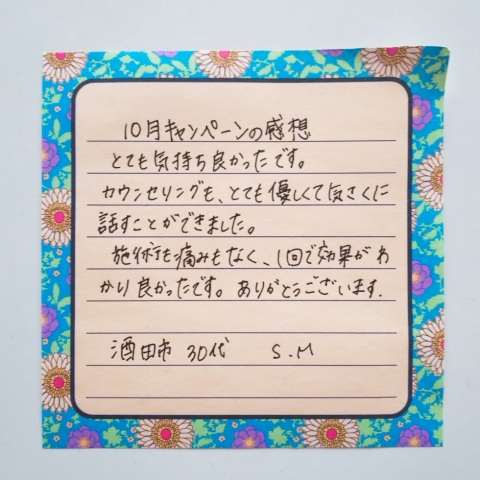 10月キャンペーンの感想
とても気持ち良かったです。
カウンセリングも、とても優しくて気さくに
話すことができました。
施術も痛みもなく、1回で効果がわ
かり良かったです。ありがとうございます.
酒田市 30代 S.M